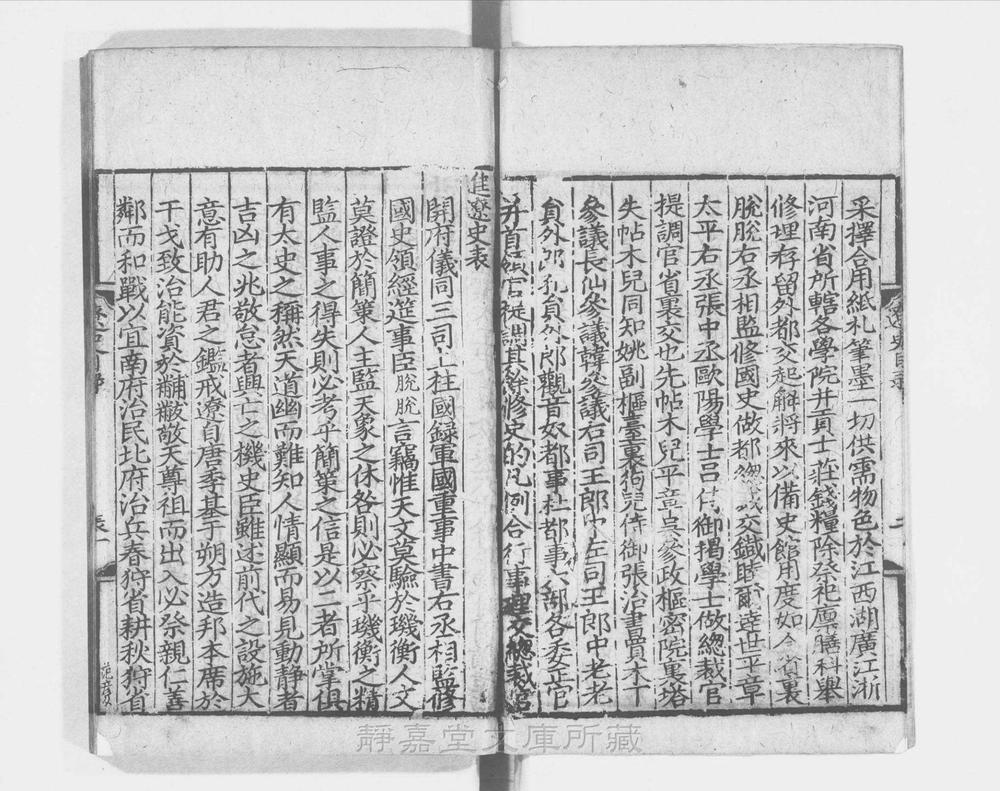 采擇合用紙札筆墨一切供需物色於江西湖廣江浙
河南省所轄各學院并貢士莊錢糧除祭祀廩膳科舉
修理存留外都交起解將來以備史館用度如今省裏
脫脫右丞相監修國史做都總裁交鐵睦爾達世平章
太平右丞張中丞歐陽學士呂侍御揭學士做總裁官
提調官省裏交也先帖木兒平章吳參政樞密院裏塔
失帖木兒同知姚副樞臺裏狗兒侍御張治書買木丁
參議長仙參議韓參議右司王郎中左司王郎中老老
員外郎孔員外郎觀音奴都事杜都事六部各委正官
并首領官提調其餘修史的凡例合行事理交總裁官
進遼史表
開府儀同三司上柱國錄軍國重事中書右丞相監修
國史領經筵事臣脫脫言竊惟天文莫驗於璣衡人文
莫證於簡策人主監天象之休咎則必察乎璣衡之精
監人事之得失則必考乎簡策之信是以二者所掌俱
有太史之稱然天道幽而難知人情顯而易見動靜者
吉凶之兆敬怠者興亡之機史臣雖述前代之設施大
意有助人君之鑑戒遼自唐季基于朔方造邦本席於
干戈致治能資於黼黻敬天尊祖而出入必祭親仁善
鄰而和戰以宜南府治民北府治兵春狩省耕秋狩省
表一
靜嘉堂文庫所藏